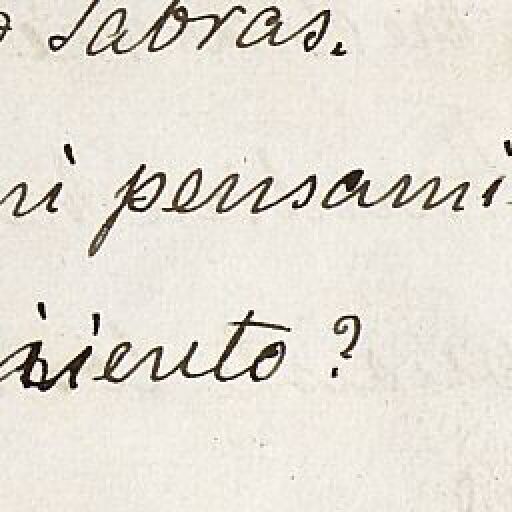 Sabras.
mi pensami
miento?